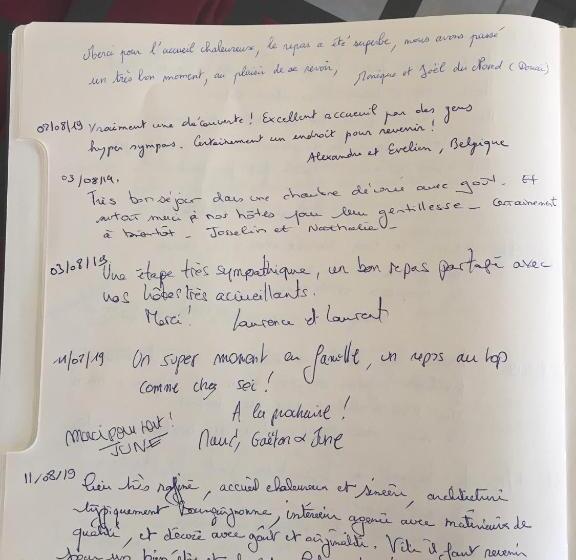 Merci pour l'accueil chaleureux, le repas a été superbe, nous avons passé
un très bon moment, au plaisir de se revoir, Monique et Joël du Nord (Douai)
02/08/19 Vraiment une découverte ! Excellent accueuil par des gens
hyper sympas. Certainement un endroit pour revenir !
Alexandre et Evelien, Belgique
03/08/19.
Très bon séjour dans une chambre décorée avec goût. Et
surtout merci à nos hôtes pour leur gentillesse - Certainement
à bientôt - Josselin et Nathalie -
03/08/19 Une étape très sympathique, un bon repas partagé avec
nos hôtes très accueillants.
Merci ! Laurence et Laurent
11/07/19 Un super moment en famille, un repas au top
comme chez soi !
A la prochaine !
Merci pour tout ! Maud, Gaëtan & June
JUNE
11/08/19 Lieu très raffiné, accueil chaleureux et sincère, architecture
typiquement Bourguignonne, intérieur agencé avec matériaux de
qualité, et décoré avec goût et originalité. Vite il faut revenir
pour un bien être et